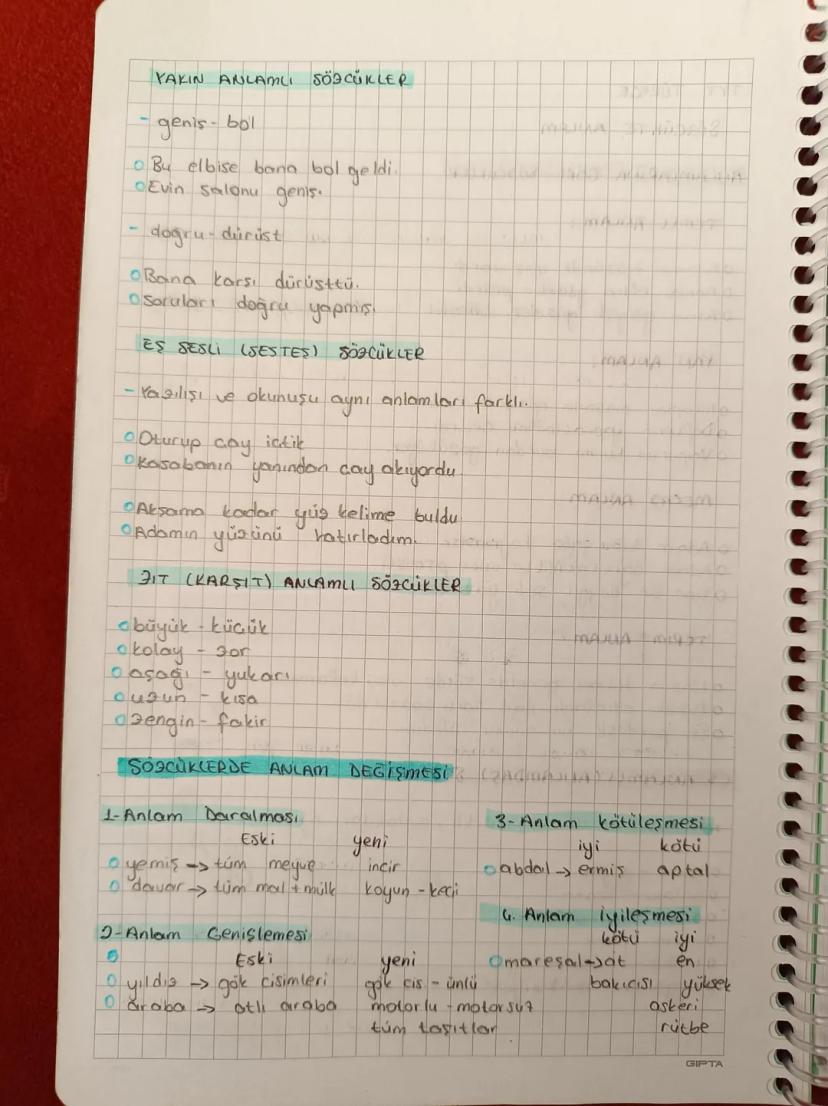 YAKIN ANLAMLI SÖZCÜKLER
- geniş - bol
Bu elbise bana bol geldi.
Evin salonu geniş.
- doğru - dürüst
Bana karşı dürüsttü.
Soruları doğru yapmış.
EŞ SESLİ (SESTEŞ) SÖZCÜKLER
- Yazılışı ve okunuşu aynı anlamları farklı.
Oturup çay içtik
Kasabanın yanından çay akıyordu.
Akşama kadar yüz kelime buldu
Adamın yüzünü hatırladım.
ZIT (KARŞIT) ANLAMLI SÖZCÜKLER
büyük - küçük
kolay - zor
aşağı - yukarı
uzun - kısa
zengin - fakir
SÖZCÜKLERDE ANLAM DEĞİŞMESİ
1- Anlam Daralması
Eski yeni
yemiş → tüm meyve incir
davar → tüm mal + mülk koyun - keçi
2- Anlam Genişlemesi
Eski yeni
yıldız → gök cisimleri gök cis - ünlü
araba → atlı araba motorlu - motorsuz
tüm taşıtlar
3- Anlam kötüleşmesi
iyi kötü
abdal → ermiş aptal
4. Anlam iyileşmesi
kötü iyi
mareşal → at en
bakıcısı yüksek
askeri
rütbe
GIPTA